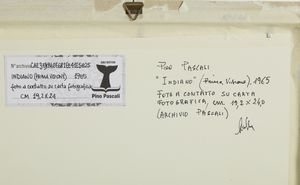 N°archivio
INDIANO (PRIMA VISIONE) 1965
foto a contatto su carta fotografica
CM 19,2 x 24
Pino Pascali
PINO PASCALI
"INDIANO" (Prima Visione), 1965
FOTO A CONTATTO SU CARTA
FOTOGRAFICA, cm 19,2 x 24,0
(ARCHIVIO PASCALI)